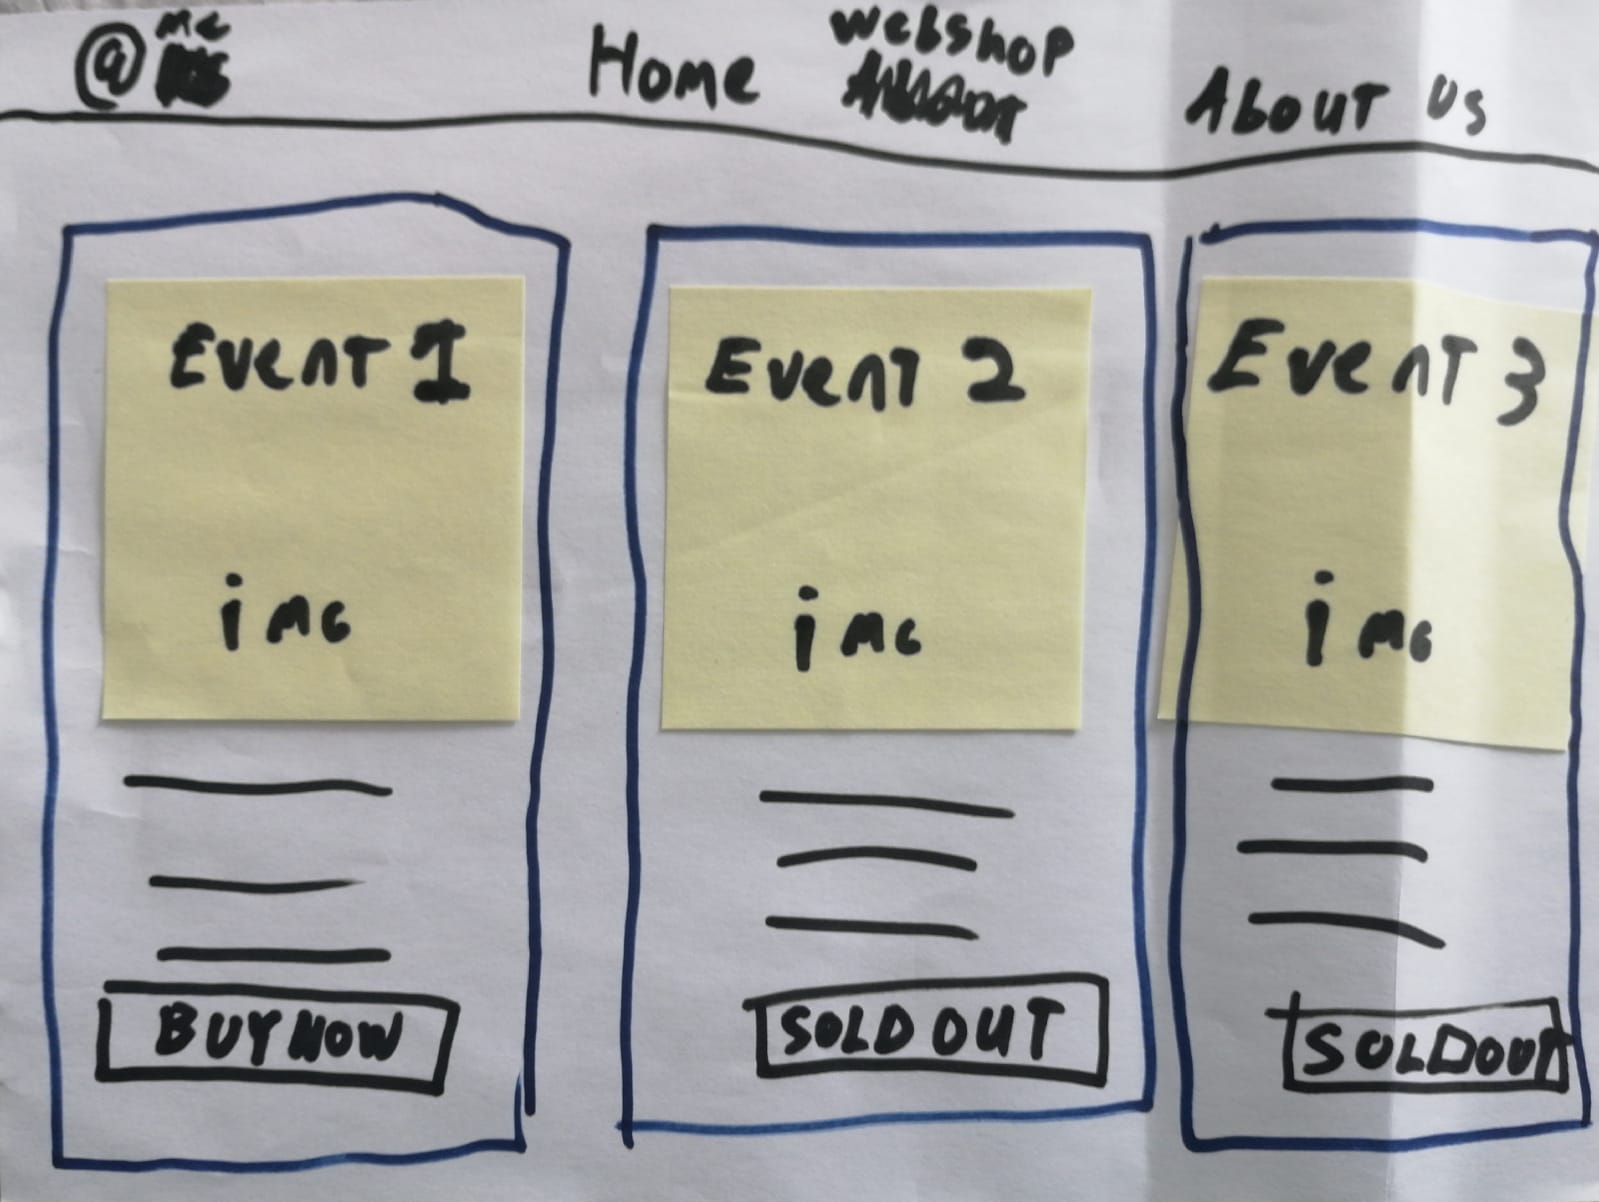 @me
Home
webshop
About us
Event 1
img
BUY NOW
Event 2
img
SOLD OUT
Event 3
img
SOLD OUT